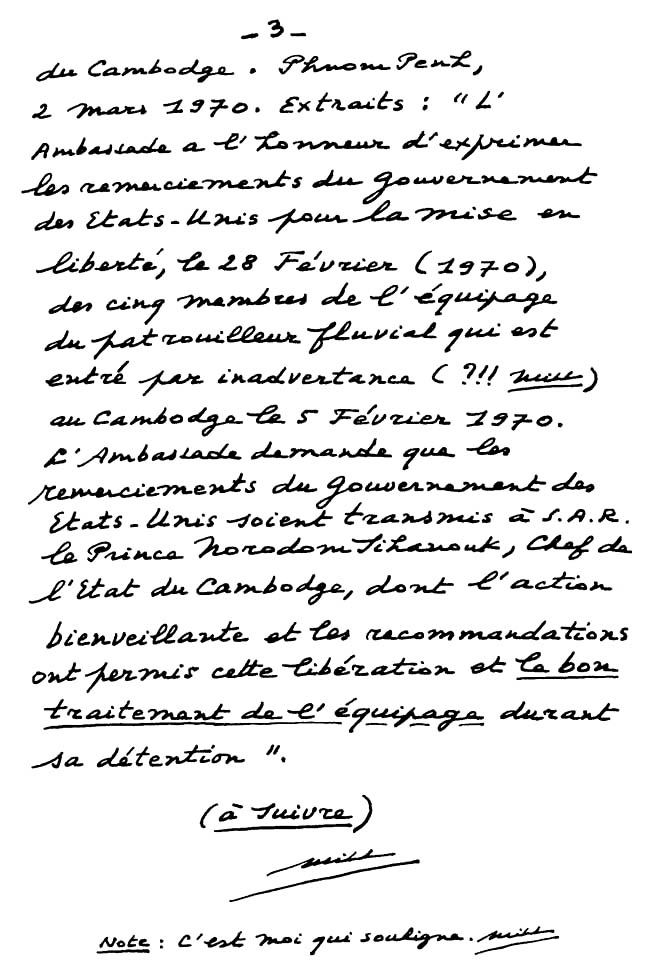 - 3 -
du Cambodge. Phnom Penh,
2 mars 1970. Extraits : " L'
Ambassade a l'honneur d'exprimer
les remerciements du gouvernement
des Etats-Unis pour la mise en
liberté, le 28 Février (1970),
des cinq membres de l'équipage
du patrouilleur fluvial qui est
entré par inadvertance ( ?!! )
au Cambodge le 5 Février 1970.
L'Ambassade demande que les
remerciements du gouvernement des
Etats-Unis soient transmis à S.A.R.
le Prince Norodom Sihanouk, Chef de
l'Etat du Cambodge, dont l'action
bienveillante et les recommandations
ont permis cette libération et le bon
traitement de l'équipage durant
sa détention ".
(à suivre)
Note : C'est moi qui souligne.